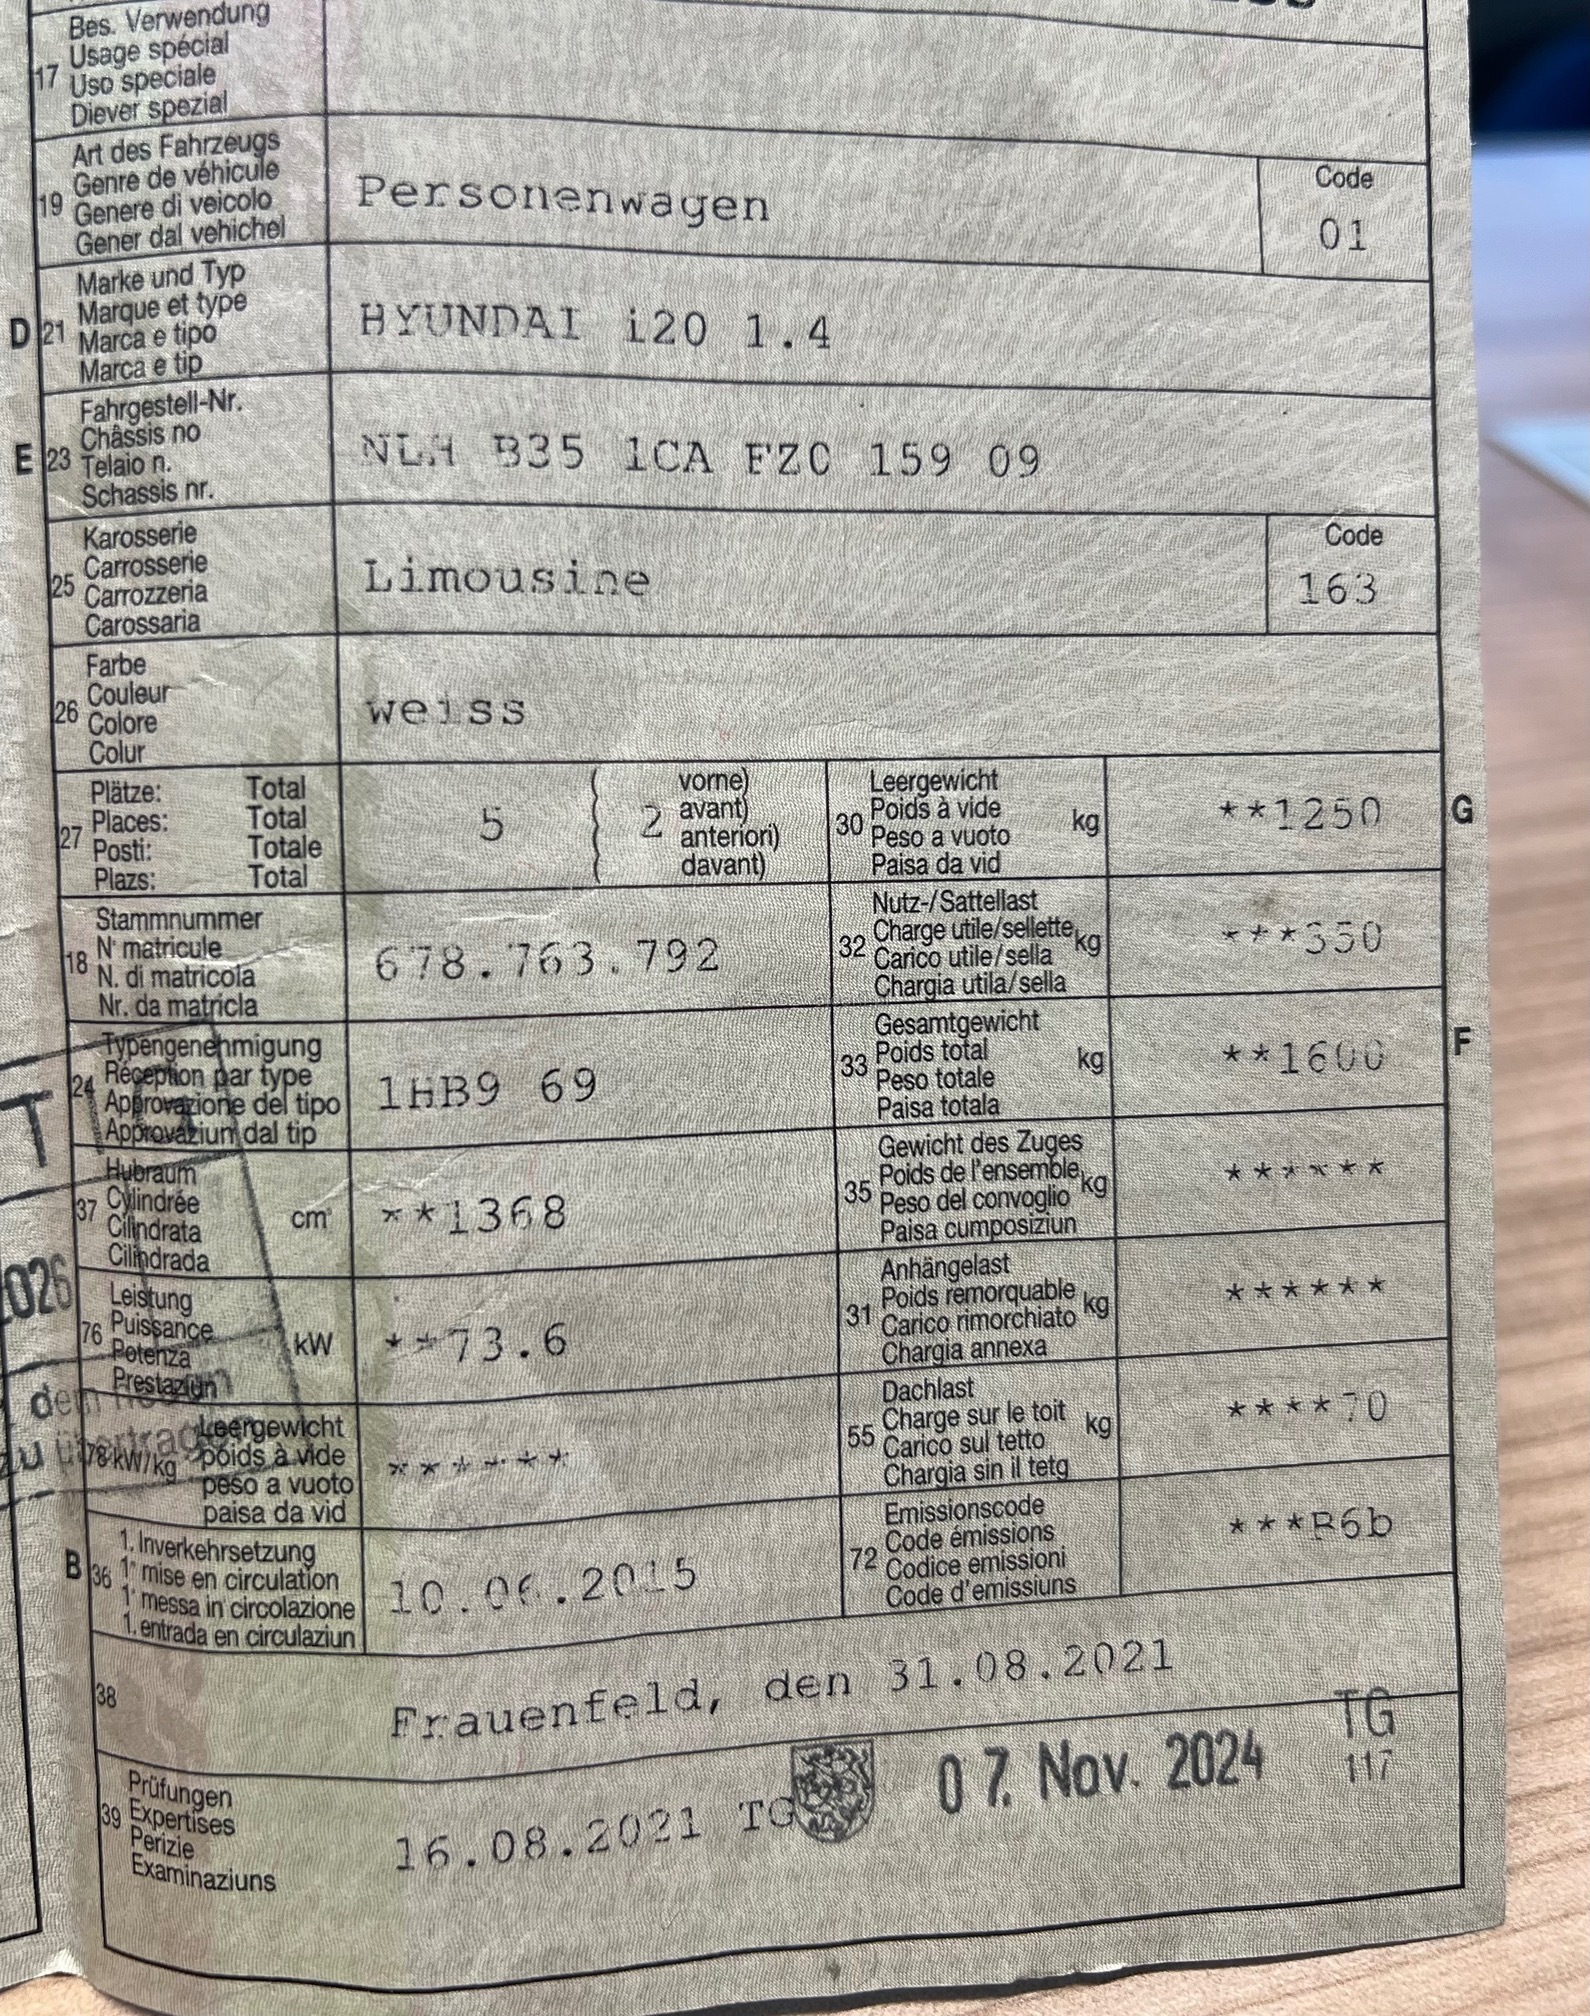 Bes. Verwendung
17 Usage spécial
Uso speciale
Diever spezial
Art des Fahrzeugs
19 Genre de véhicule
Genere di veicolo
Gener dal vehichel
Personenwagen
Code
01
Marke und Typ
D 21 Marque et type
Marca e tipo
Marca e tip
HYUNDAI i20 1.4
Fahrgestell-Nr.
E 23 Châssis no
Telaio n.
Schassis nr.
NLH B35 1CA FZC 159 09
Karosserie
25 Carrosserie
Carrozzeria
Carossaria
Limousine
Code
163
Farbe
26 Couleur
Colore
Colur
weiss
Plätze: Total
27 Places: Total
Posti: Totale
Plazs: Total
5
2
vorne)
avant)
anteriori)
davant)
Leergewicht
30 Poids à vide kg
Peso a vuoto
Paisa da vid
**1250
G
Stammnummer
18 N° matricule
N. di matricola
Nr. da matricla
678.763.792
Nutz-/Sattellast
32 Charge utile/sellette kg
Carico utile/sella
Chargia utila/sella
***350
Typengenehmigung
24 Réception par type
Approvazione del tipo
Approvaziun dal tip
1HB9 69
Gesamtgewicht
33 Poids total kg
Peso totale
Paisa totala
**1600
F
T
Hubraum
37 Cylindrée cm³
Cilindrata
Cilindrada
**1368
Gewicht des Zuges
35 Poids de l'ensemble kg
Peso del convoglio
Paisa cumposiziun
******
026
Leistung
76 Puissance kW
Potenza
Prestaziun
**73.6
Anhängelast
31 Poids remorquable kg
Carico rimorchiato
Chargia annexa
******
dem
zu
Leergewicht
78 kW/kg poids à vide
peso a vuoto
paisa da vid
******
Dachlast
55 Charge sur le toit kg
Carico sul tetto
Chargia sin il tetg
****70
1. Inverkehrsetzung
B 36 1° mise en circulation
1° messa in circolazione
1. entrada en circulaziun
10.06.2015
Emissionscode
72 Code émissions
Codice emissioni
Code d'emissiuns
***B6b
38
Frauenfeld, den 31.08.2021
Prüfungen
39 Expertises
Perizie
Examinaziuns
16.08.2021 TG
07. Nov. 2024
TG
117